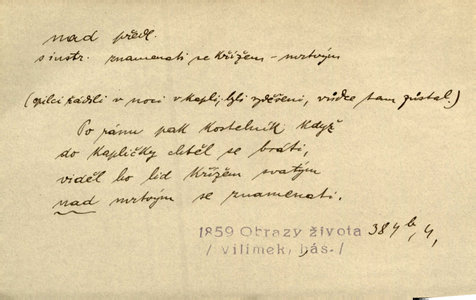 nad předl.
s instr. znamenati se křížem – mrtvým
(opilci řádili v noci v kapli, byli zděšeni, vůdce tam zůstal.)
Po ránu pak kostelník když
do kapličky chtěl se bráti,
viděl ho lid křížem svatým
nad mrtvým se znamenati.
1859 Obrazy života 384b,4,
/Vilímek, bás./